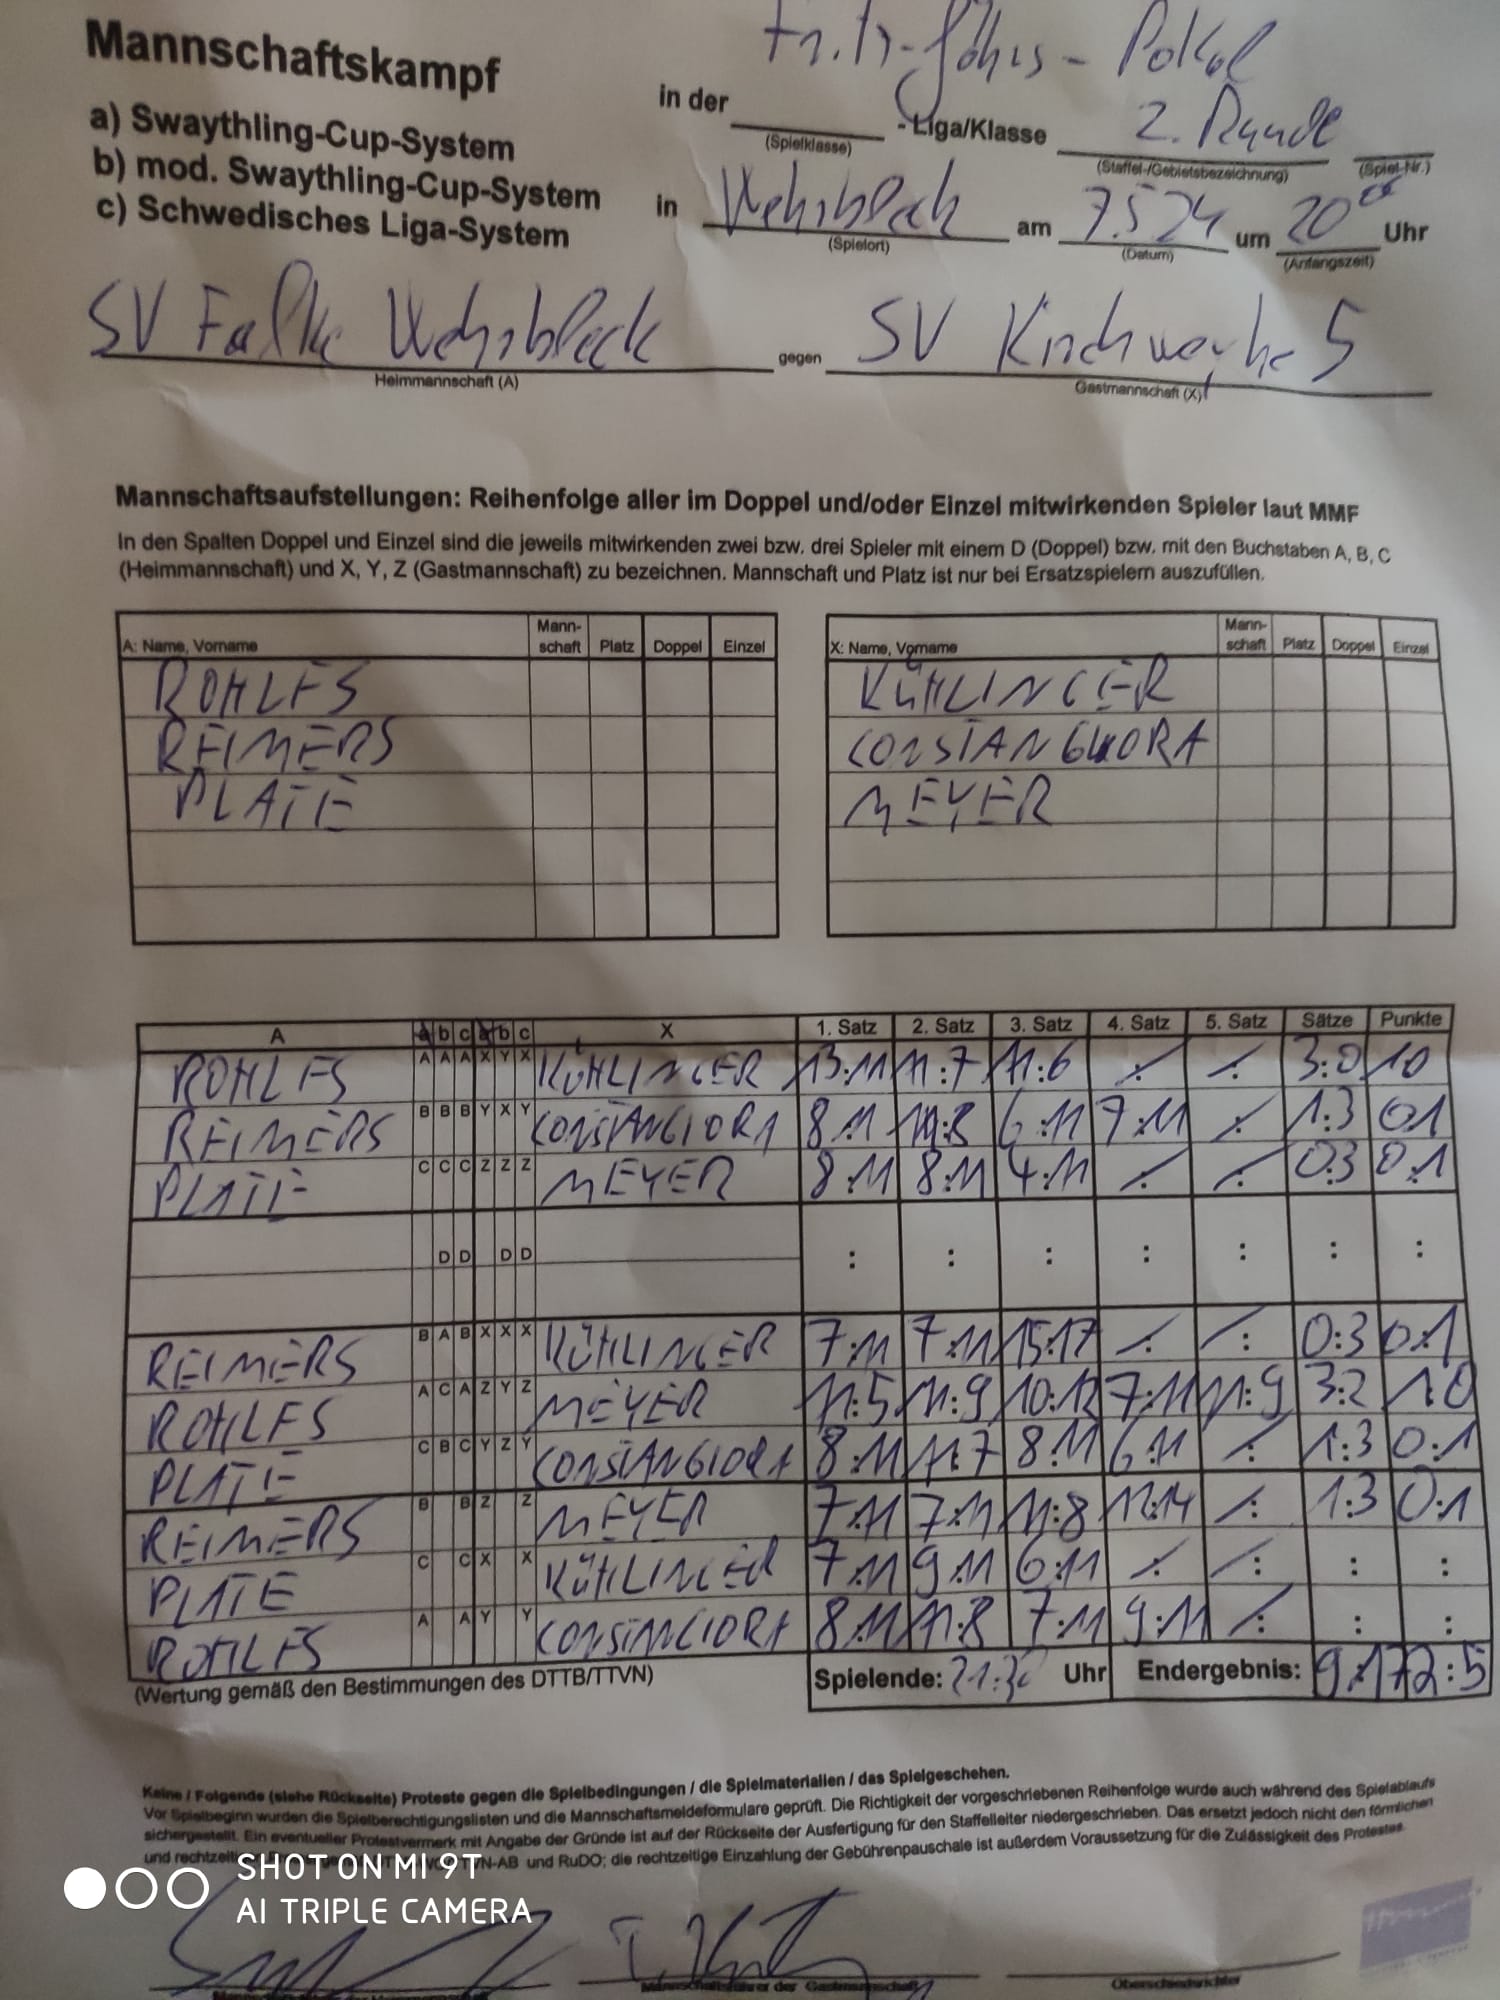 Mannschaftskampf
Pokal
a) Swaythling-Cup-System
b) mod. Swaythling-Cup-System
c) Schwedisches Liga-System
in der - Liga/Klasse 2. Runde
(Spielklasse) (Staffel-/Gebietsbezeichnung) (Spiel-Nr.)
in Wehrbleck am 7.5.24 um 20 00 Uhr
(Spielort) (Datum) (Anfangszeit)
SV Falke Wehrbleck gegen SV Kirchweyhe 5
Heimmannschaft (A) Gastmannschaft (X)
Mannschaftsaufstellungen: Reihenfolge aller im Doppel und/oder Einzel mitwirkenden Spieler laut MMF
In den Spalten Doppel und Einzel sind die jeweils mitwirkenden zwei bzw. drei Spieler mit einem D (Doppel) bzw. mit den Buchstaben A, B, C
(Heimmannschaft) und X, Y, Z (Gastmannschaft) zu bezeichnen. Mannschaft und Platz ist nur bei Ersatzspielern auszufüllen.
A: Name, Vorname Mann-schaft Platz Doppel Einzel
ROHLFS
REIMERS
PLATE
X: Name, Vorname Mann-schaft Platz Doppel Einzel
KÜHLINGER
MEYER
A a b c a b c X 1. Satz 2. Satz 3. Satz 4. Satz 5. Satz Sätze Punkte
ROHLFS A A A X Y X KÜHLINGER 13:11 11:7 11:6 : : 3:0 1:0
REIMERS B B B Y X Y CONSTANGIORA 8:11 11:8 6:11 7:11 : 1:3 0:1
PLATE C C C Z Z Z MEYER 8:11 8:11 4:11 : : 0:3 0:1
D D D D : : : : : : :
REIMERS B A B X X X KÜHLINGER 7:11 7:11 15:17 : : 0:3 0:1
ROHLFS A C A Z Y Z MEYER 11:5 11:9 10:12 7:11 11:9 3:2 1:0
PLATE C B C Y Z Y CONSTANGIORA 8:11 11:7 8:11 6:11 : 1:3 0:1
REIMERS B B Z Z MEYER 7:11 7:11 11:8 12:14 : 1:3 0:1
PLATE C C X X KÜHLINGER 7:11 9:11 6:11 : : : :
ROHLFS A A Y Y CONSTANGIORA 8:11 11:8 7:11 9:11 : : :
(Wertung gemäß den Bestimmungen des DTTB/TTVN) Spielende: 21:30 Uhr Endergebnis: 9:17 2:5
Keine / Folgende (siehe Rückseite) Proteste gegen die Spielbedingungen / die Spielmaterialien / das Spielgeschehen.
Vor Spielbeginn wurden die Spielberechtigungslisten und die Mannschaftsmeldeformulare geprüft. Die Richtigkeit der vorgeschriebenen Reihenfolge wurde auch während des Spielablaufs
sichergestellt. Ein eventueller Protestvermerk mit Angabe der Gründe ist auf der Rückseite der Ausfertigung für den Staffelleiter niedergeschrieben. Das ersetzt jedoch nicht den förmlichen
und und RuDO; die rechtzeitige Einzahlung der Gebührenpauschale ist außerdem Voraussetzung für die Zulässigkeit des Protestes.
SHOT ON MI 9T
AI TRIPLE CAMERA
Mannschaftsführer der Gastmannschaft Oberschiedsrichter